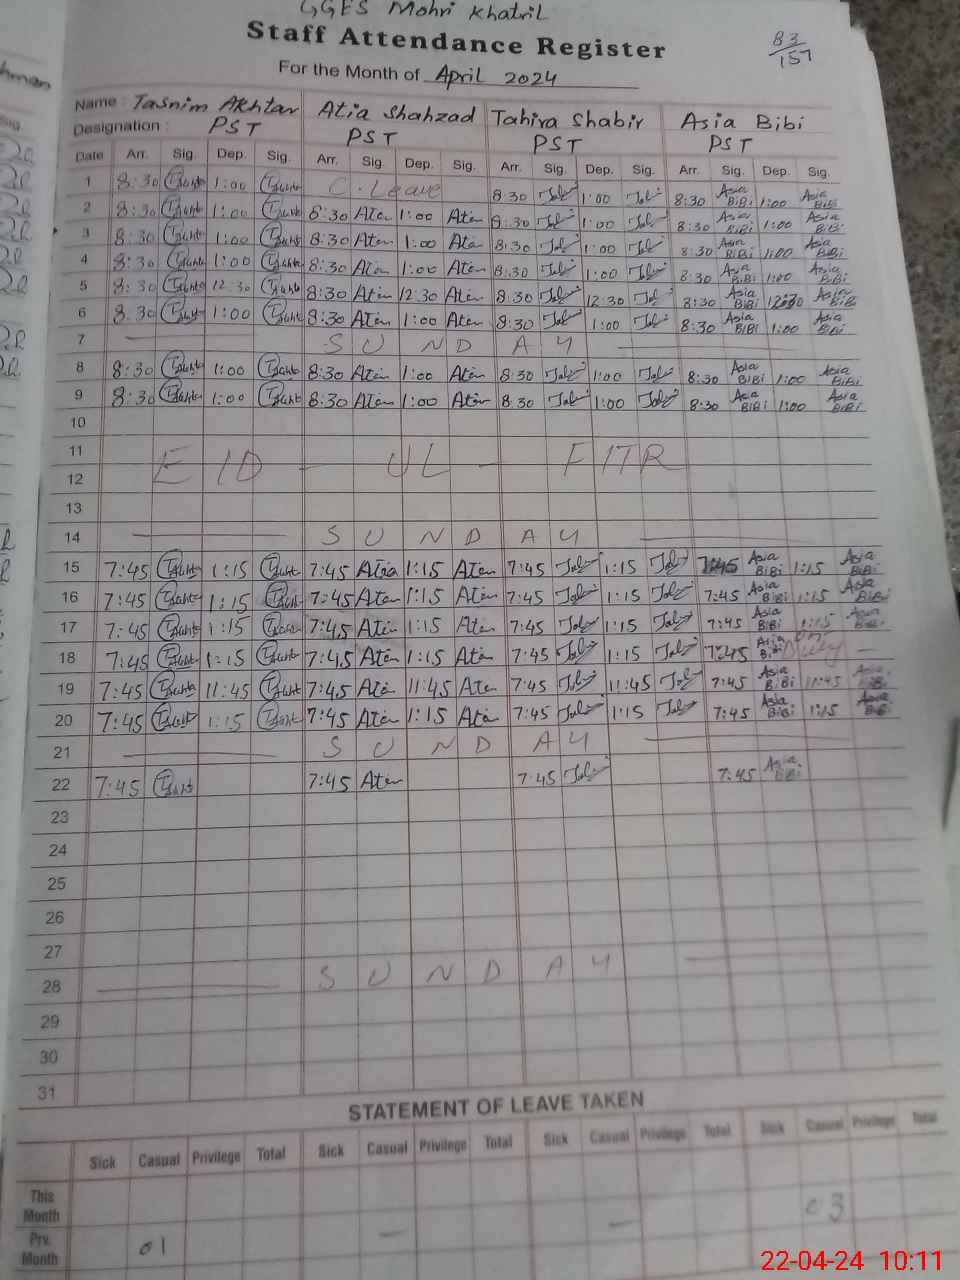 GGES Mohri Khatril
Staff Attendance Register
83
157
For the Month of April 2024
Name : Tasnim Akhtar Atia Shahzad Tahira Shabir Asia Bibi
Designation : PST PST PST PST
Date Arr. Sig. Dep. Sig. Arr. Sig. Dep. Sig. Arr. Sig. Dep. Sig. Arr. Sig. Dep. Sig.
1 8:30 1:00 C. Leave 8:30 1:00 8:30 Asia BiBi 1:00 Asia BiBi
2 8:30 1:00 8:30 Atia 1:00 Atia 8:30 1:00 8:30 Asia BiBi 1:00 Asia BiBi
3 8:30 1:00 8:30 Atia 1:00 Atia 8:30 1:00 8:30 Asia BiBi 1:00 Asia BiBi
4 8:30 1:00 8:30 Atia 1:00 Atia 8:30 1:00 8:30 Asia BiBi 1:00 Asia BiBi
5 8:30 12:30 8:30 Atia 12:30 Atia 8:30 12:30 8:30 Asia BiBi 12:30 Asia BiBi
6 8:30 1:00 8:30 Atia 1:00 Atia 8:30 1:00 8:30 Asia BiBi 1:00 Asia BiBi
7 SUNDAY
8 8:30 1:00 8:30 Atia 1:00 Atia 8:30 1:00 8:30 Asia BiBi 1:00 Asia BiBi
9 8:30 1:00 8:30 Atia 1:00 Atia 8:30 1:00 8:30 Asia BiBi 1:00 Asia BiBi
10
11 EID - UL - FITR
12
13
14 SUNDAY
15 7:45 1:15 7:45 Atia 1:15 Atia 7:45 1:15 7:45 Asia BiBi 1:15 Asia BiBi
16 7:45 1:15 7:45 Atia 1:15 Atia 7:45 1:15 7:45 Asia BiBi 1:15 Asia BiBi
17 7:45 1:15 7:45 Atia 1:15 Atia 7:45 1:15 7:45 Asia BiBi 1:15 Asia BiBi
18 7:45 1:15 7:45 Atia 1:15 Atia 7:45 1:15 7:45 Asia BiBi On Duty
19 7:45 11:45 7:45 Atia 11:45 Atia 7:45 11:45 7:45 Asia BiBi 11:45 Asia BiBi
20 7:45 1:15 7:45 Atia 1:15 Atia 7:45 1:15 7:45 Asia BiBi 1:15 Asia BiBi
21 SUNDAY
22 7:45 7:45 Atia 7:45 7:45 Asia BiBi
23
24
25
26
27
28 SUNDAY
29
30
31
STATEMENT OF LEAVE TAKEN
Sick Casual Privilege Total Sick Casual Privilege Total Sick Casual Privilege Total Sick Casual Privilege Total
This Month 03
Prv. Month 01 — —
22-04-24 10:11